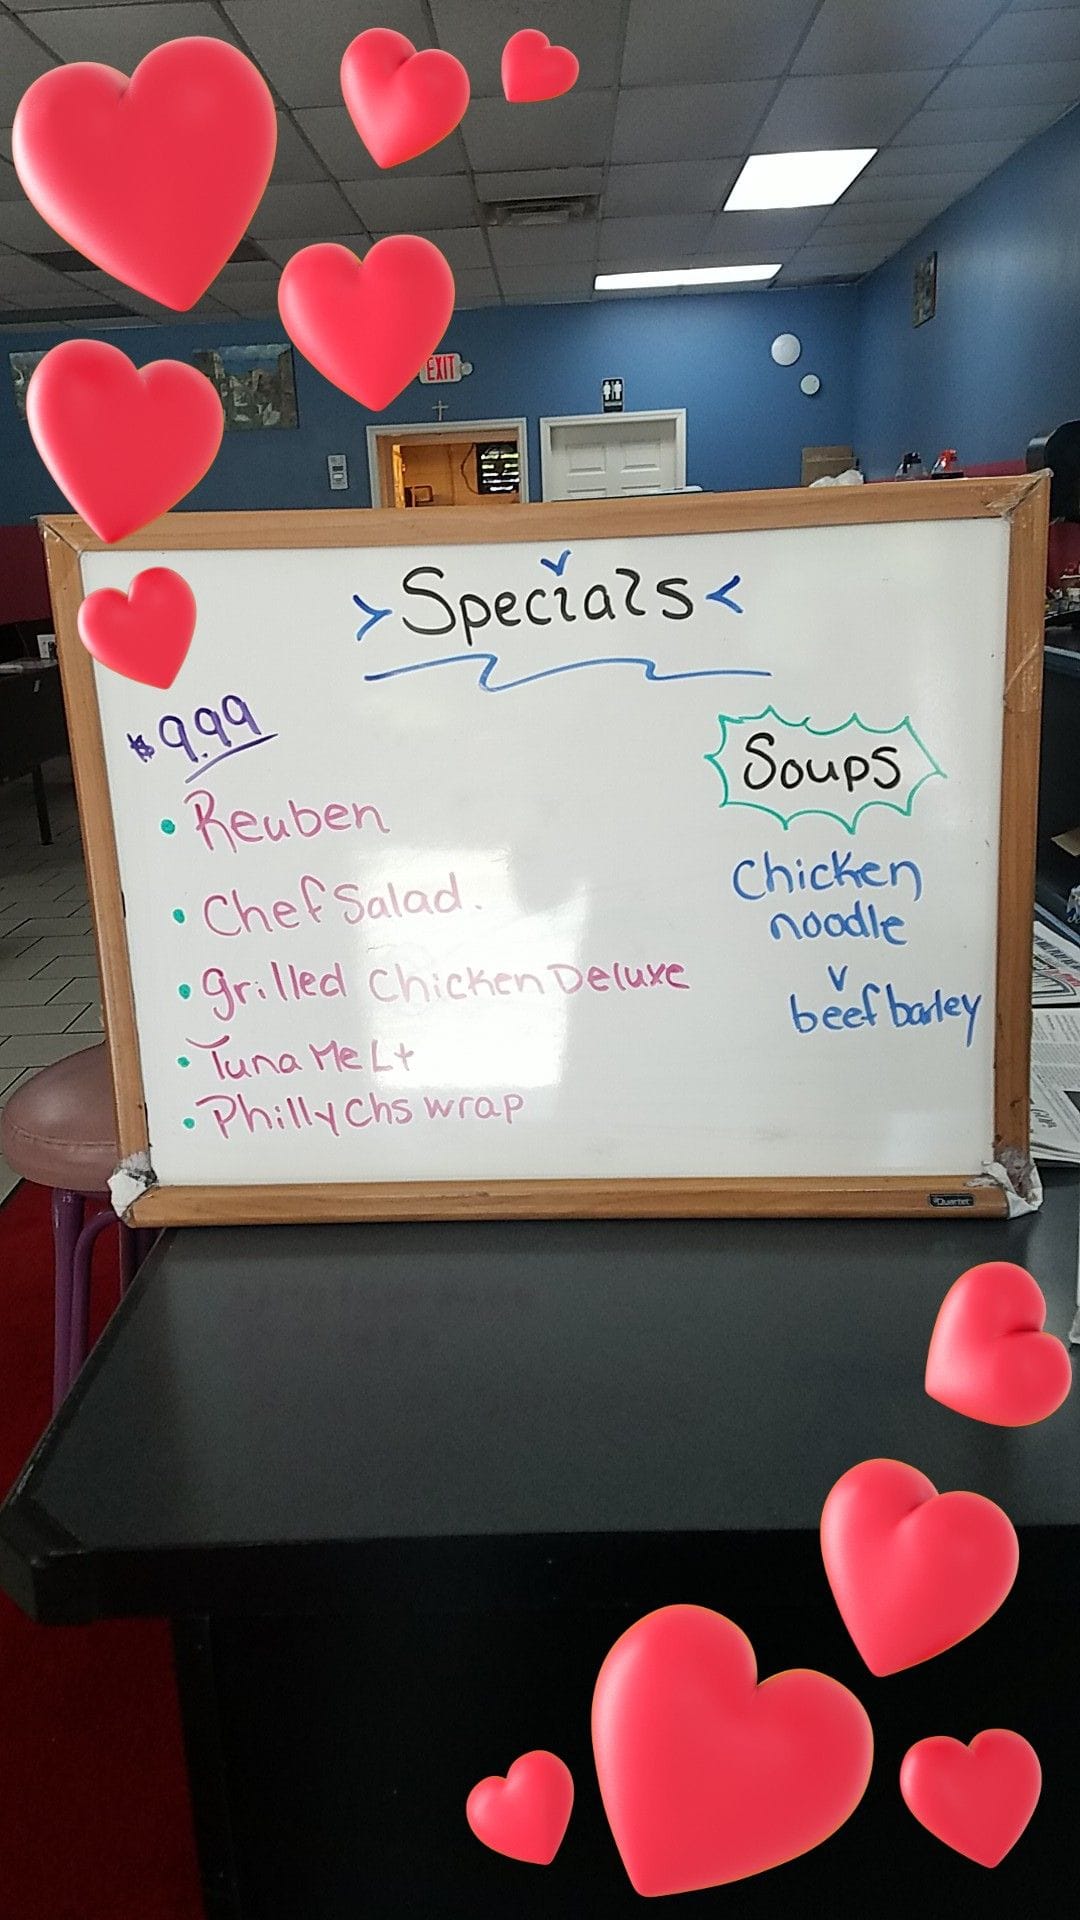 EXIT
Specials
$9.99
• Reuben
• Chef Salad.
• grilled Chicken Deluxe
• Tuna MeLt
• Philly Chs wrap
Soups
Chicken
noodle
beef barley
Quartet